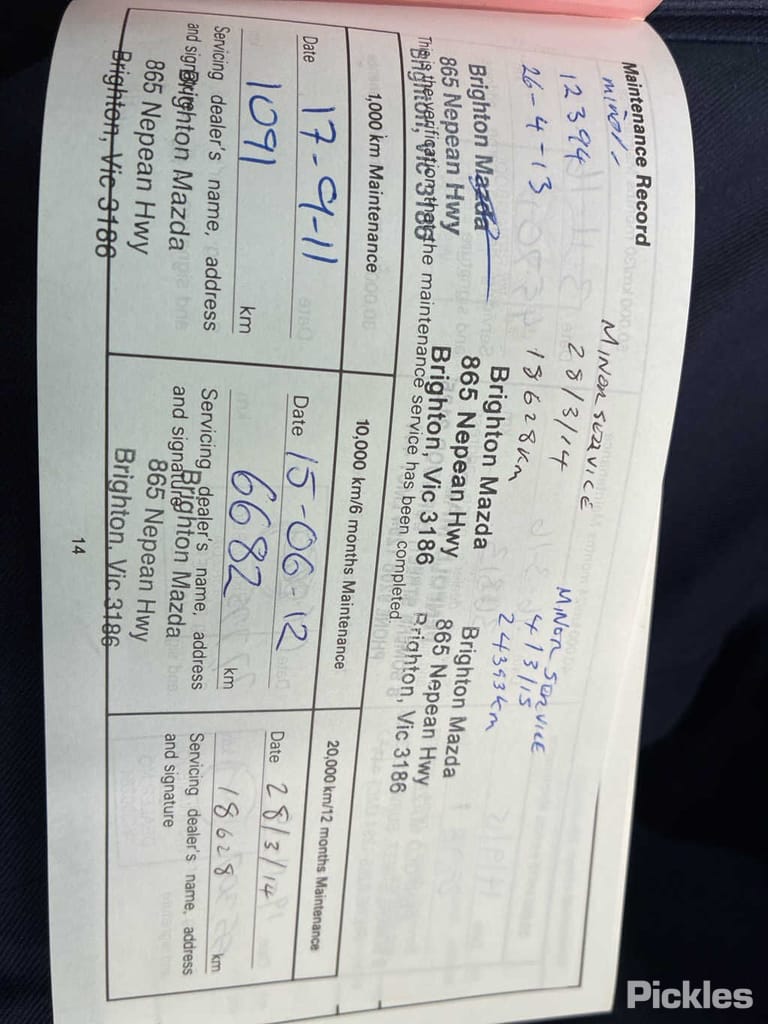 Maintenance Record
minor -
12394
26-4-13
Brighton Mazda
865 Nepean Hwy
Brighton, Vic 3186
Minor service
28/3/14
18628km
Brighton Mazda
865 Nepean Hwy
Brighton, Vic 3186
Minor service
4/3/15
24393km
Brighton Mazda
865 Nepean Hwy
Brighton, Vic 3186
This is the verification that the maintenance service has been completed
1,000 km Maintenance
Date 17-9-11
1091 km
Servicing dealer's name, address
and signature
Brighton Mazda
865 Nepean Hwy
Brighton, Vic 3186
10,000 km/6 months Maintenance
Date 15-06-12
6682 km
Servicing dealer's name, address
and signature
Brighton Mazda
865 Nepean Hwy
Brighton, Vic 3186
20,000 km/12 months Maintenance
Date 28/3/14
18628 km
Servicing dealer's name, address
and signature
14
Pickles